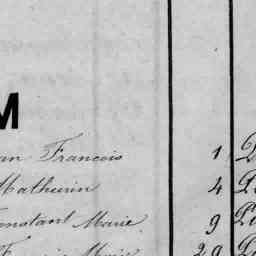 M
an Francois 1
Mathurin 4
onstant Marie 9
Marie 20